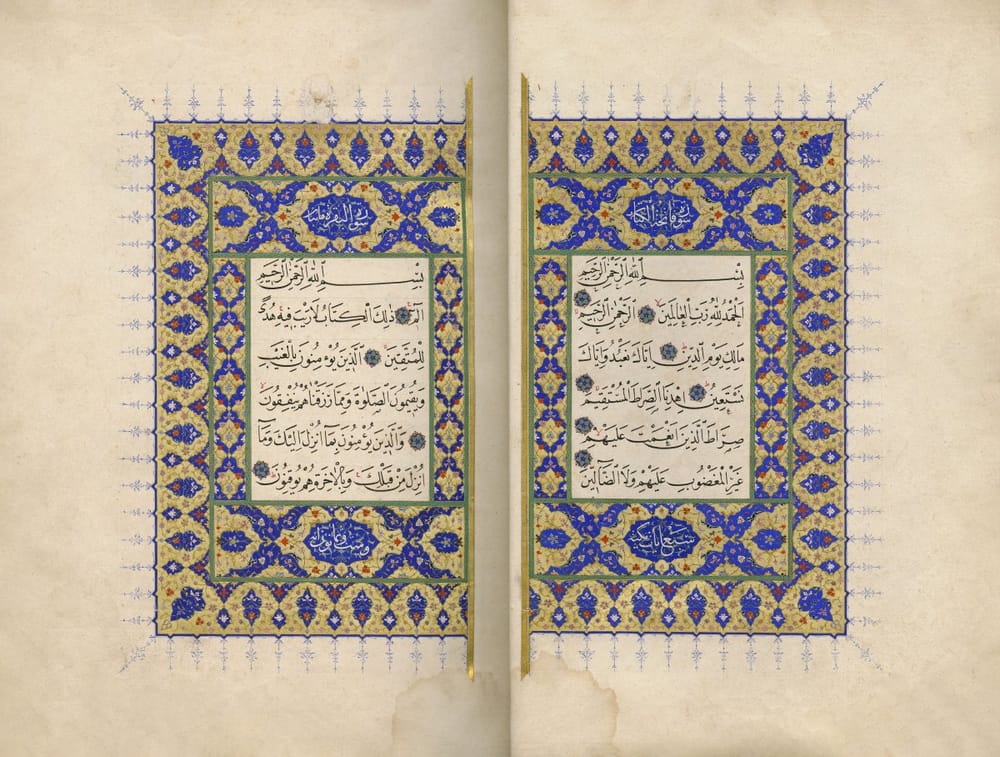 سُورَةُ فَاتِحَةِ الْكِتَابِ
بِسْمِ اللّٰهِ الرَّحْمٰنِ الرَّحِيمِ
اَلْحَمْدُ لِلّٰهِ رَبِّ الْعَالَمِينَ اَلرَّحْمٰنِ الرَّحِيمِ
مَالِكِ يَوْمِ الدِّينِ اِيَّاكَ نَعْبُدُ وَاِيَّاكَ
نَسْتَعِينُ اِهْدِنَا الصِّرَاطَ الْمُسْتَقِيمَ
صِرَاطَ الَّذِينَ اَنْعَمْتَ عَلَيْهِمْ
غَيْرِ الْمَغْضُوبِ عَلَيْهِمْ وَلَا الضَّالِّينَ
سَبْعُ اٰيَاتٍ مَكِّيَّة
سُورَةُ الْبَقَرَةِ مِائَتَا
بِسْمِ اللّٰهِ الرَّحْمٰنِ الرَّحِيمِ
الٓمٓ ذٰلِكَ الْكِتَابُ لَا رَيْبَ فِيهِ هُدًى
لِلْمُتَّقِينَ اَلَّذِينَ يُؤْمِنُونَ بِالْغَيْبِ
وَيُقِيمُونَ الصَّلٰوةَ وَمِمَّا رَزَقْنَاهُمْ يُنْفِقُونَ
وَالَّذِينَ يُؤْمِنُونَ بِمَٓا اُنْزِلَ اِلَيْكَ وَمَٓا
اُنْزِلَ مِنْ قَبْلِكَ وَبِالْاٰخِرَةِ هُمْ يُوقِنُونَ
وَسِتّ وَثَمَانُونَ اٰيَة